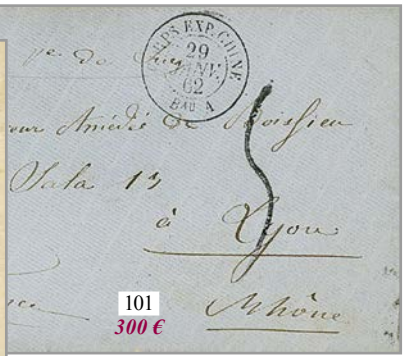 CORPS EXP. CHINE
29
JANV.
62
BAU A
pr. de
eur Amédée de Boissieu
Sala 13
à Lyon
Rhône
101
300 €